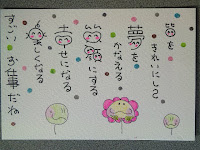 歯を
きれいにして
夢を
かなえる
笑顔にする
幸せになる
楽しくなる
すごい お仕事だね